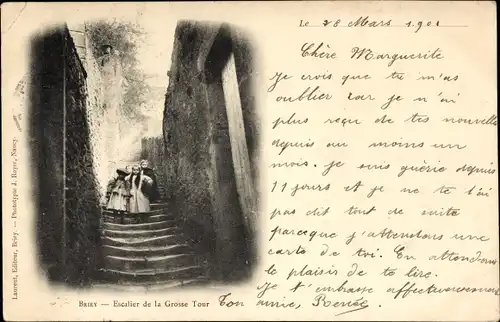 Le 28 Mars 1901
Chère Marguerite
Je crois que tu m'as
oublier car je n'ai
plus reçu de tes nouvelle
depuis au moins un
mois. je suis guérie depuis
11 jours et je ne te l'ai
pas dit tout de suite
parceque j'attendais une
carte de toi. En attendant
le plaisir de te lire.
Je t'embrasse affectueusement
Ton amie, Renée
BRIEY — Escalier de la Grosse Tour
Laurent, Editeur, Briey. — Phototypie J. Royer, Nancy.